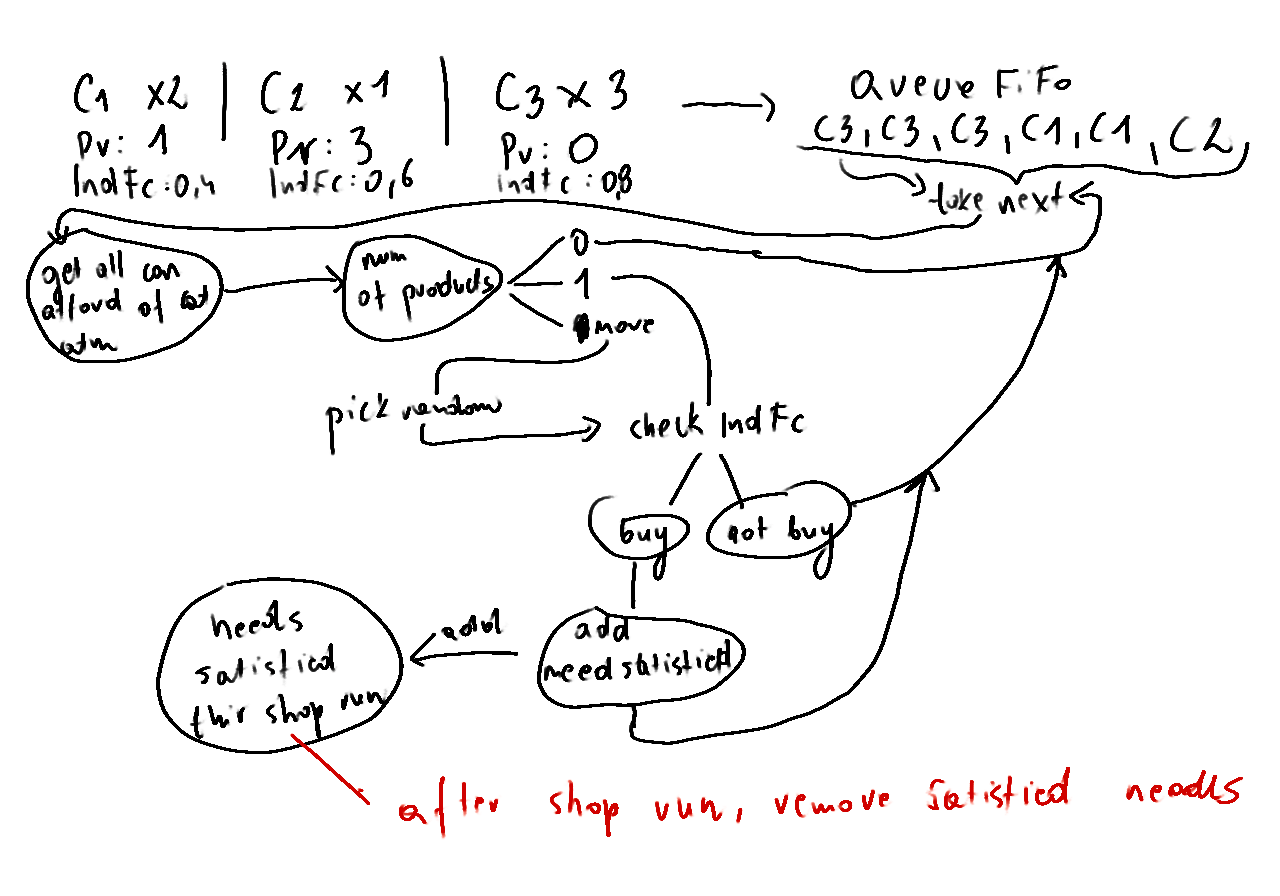 C1 x2 | C2 x1 | C3 x 3
Pr: 1 Pr: 3 Pr: 0
IndFc:0,4 IndFc:0,6 indFc:0,8
Queue FiFo
C3, C3, C3, C1, C1, C2,
take next
get all can
afford of cat
atm
num
of products
0
1
more
pick random
check IndFc
buy
not buy
add
need satisfied
add
needs
satisfied
this shop run
after shop run, remove satisfied needs